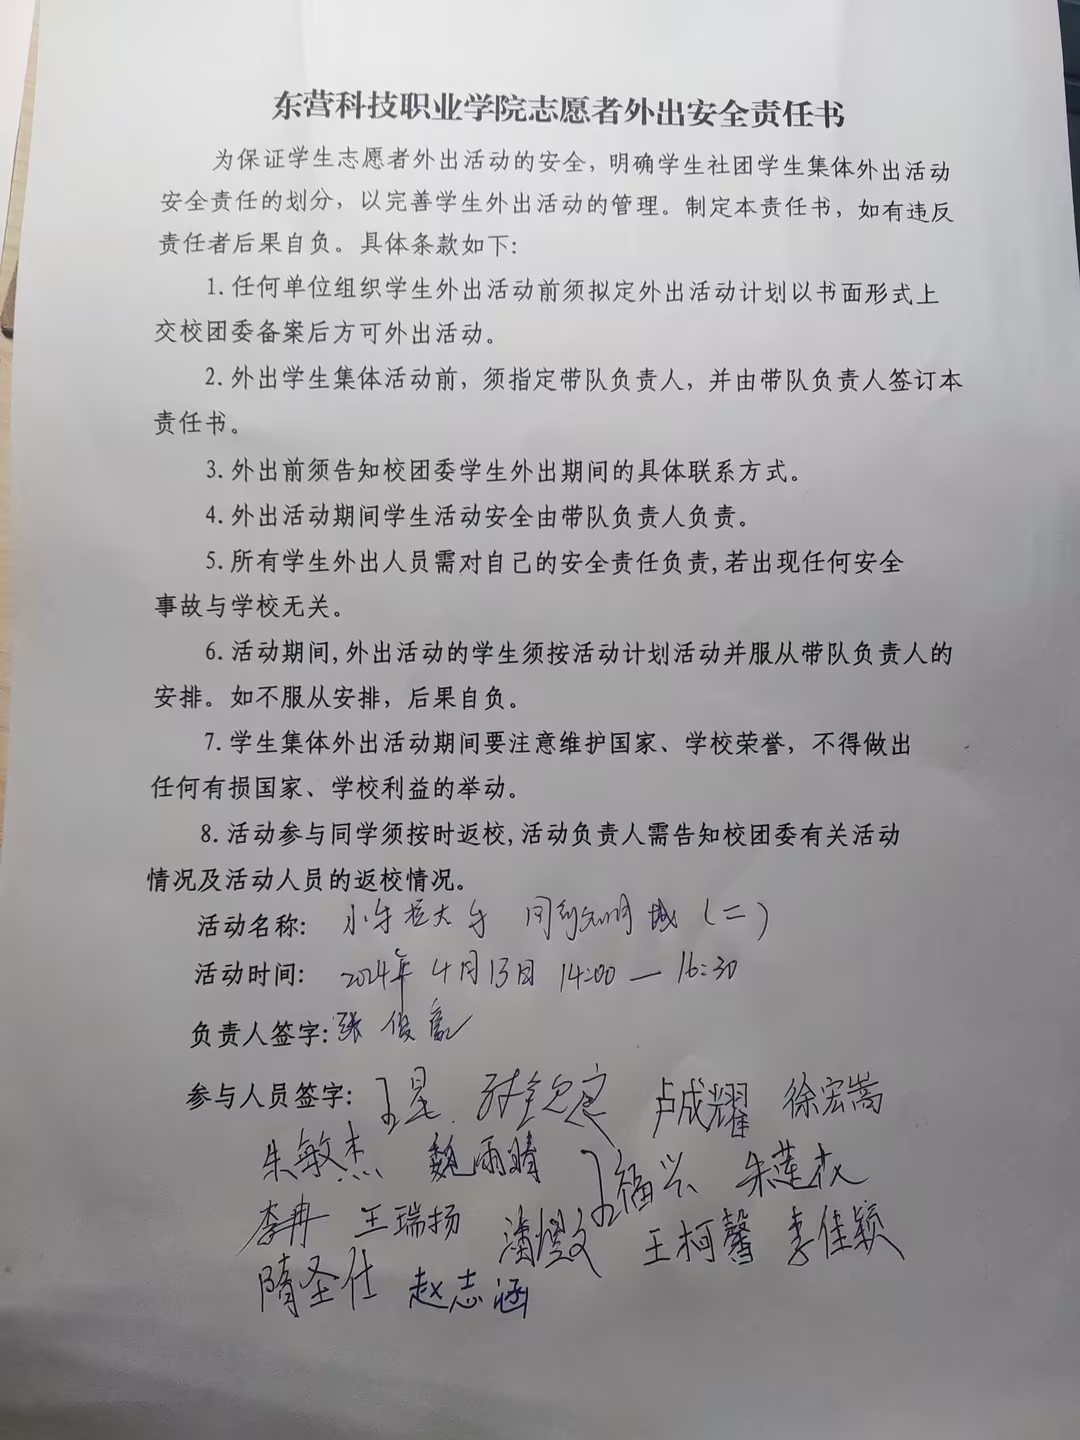 东营科技职业学院志愿者外出安全责任书
为保证学生志愿者外出活动的安全，明确学生社团学生集体外出活动
安全责任的划分，以完善学生外出活动的管理。制定本责任书，如有违反
责任者后果自负。具体条款如下：
1.任何单位组织学生外出活动前须拟定外出活动计划以书面形式上
交校团委备案后方可外出活动。
2.外出学生集体活动前，须指定带队负责人，并由带队负责人签订本
责任书。
3.外出前须告知校团委学生外出期间的具体联系方式。
4.外出活动期间学生活动安全由带队负责人负责。
5.所有学生外出人员需对自己的安全责任负责,若出现任何安全
事故与学校无关。
6.活动期间,外出活动的学生须按活动计划活动并服从带队负责人的
安排。如不服从安排，后果自负。
7.学生集体外出活动期间要注意维护国家、学校荣誉，不得做出
任何有损国家、学校利益的举动。
8.活动参与同学须按时返校,活动负责人需告知校团委有关活动
情况及活动人员的返校情况。
活动名称: 小手拉大手 同创文明城(二)
活动时间: 2024年4月13日 14:00—16:30
负责人签字: 张俊
参与人员签字: 王星 卢成耀 徐宏嵩
朱敏杰 魏雨晴 王福兴 朱莲
李冉 王瑞扬 潘 王柯馨 李佳颖
隋圣仕 赵志涵